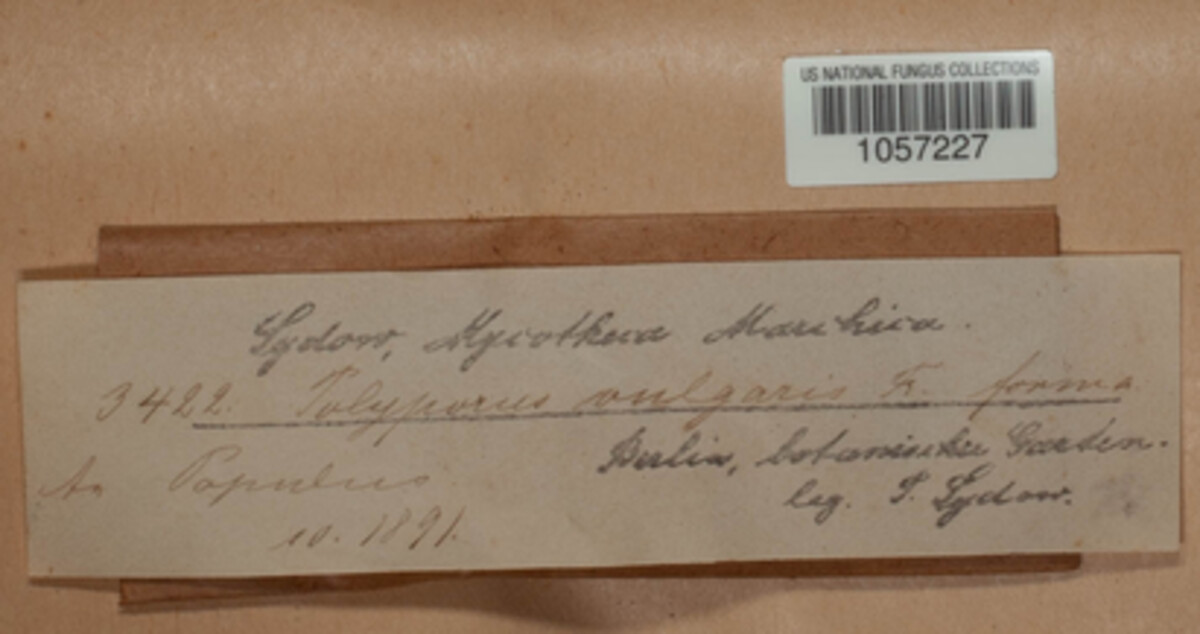 US NATIONAL FUNGUS COLLECTIONS
1057227
Sydow, Mycotheca Marchica.
3422. Polyporus vulgaris Fr. forma
An Populus
10. 1891.
Berlin, botanischer Garten.
leg. P. Sydow.